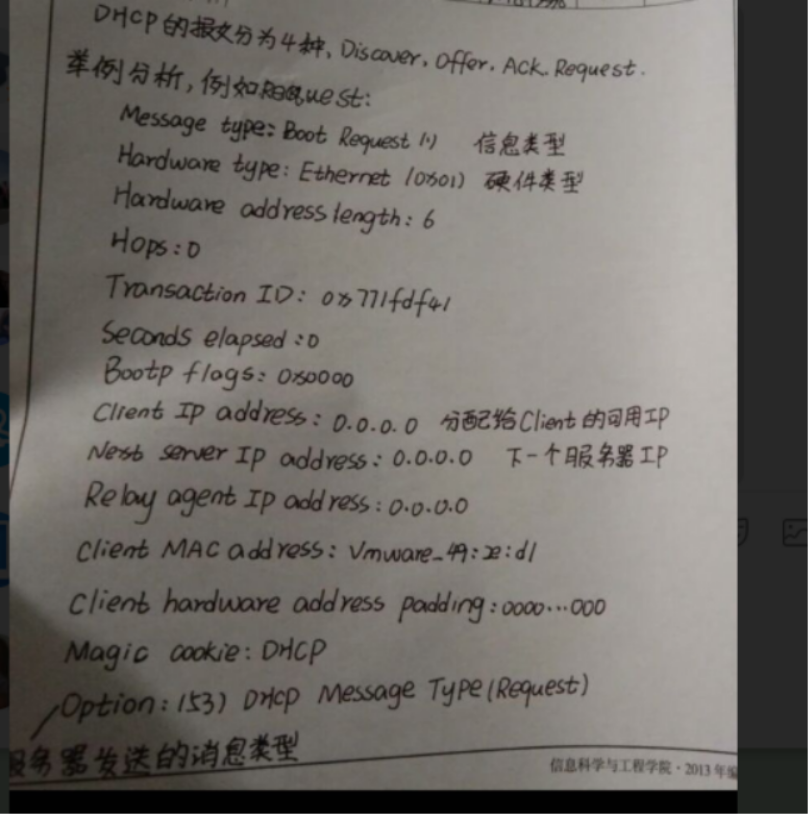 DHCP的报文分为4种、Discover. Offer. Ack. Request.
举例分析,例如Request:
Message type: Boot Request (1) 信息类型
Hardware type: Ethernet (0x01) 硬件类型
Hardware address length: 6
Hops: 0
Transaction ID: 0x771fdf41
Seconds elapsed: 0
Bootp flags: 0x0000
Client IP address: 0.0.0.0 分配给Client的可用IP
Next server IP address: 0.0.0.0 下一个服务器IP
Relay agent IP address: 0.0.0.0
Client MAC address: Vmware_49: :d1
Client hardware address padding: 0000...000
Magic cookie: DHCP
Option: (53) DHCP Message Type (Request)
服务器发送的消息类型
信息科学与工程学院·2013年编